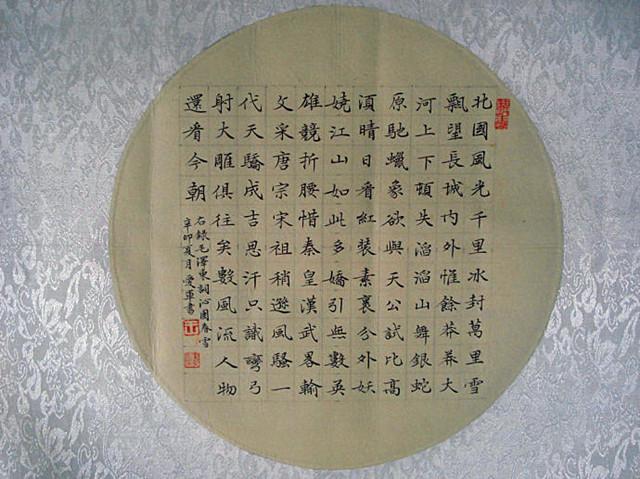 北國風光千里冰封萬里雪
飄望長城內外惟餘莽莽大
河上下頓失滔滔山舞銀蛇
原馳蠟象欲與天公試比高
須晴日看紅裝素裹分外妖
嬈江山如此多嬌引無數英
雄競折腰惜秦皇漢武畧輸
文采唐宗宋祖稍遜風騷一
代天驕成吉思汗只識彎弓
射大雕俱往矣數風流人物
還看今朝
右錄毛澤東詞沁園春雪
辛卯夏月愛軍書